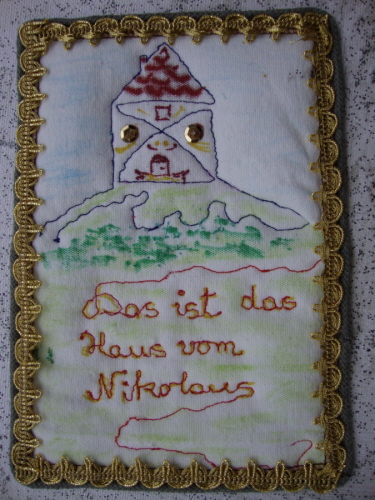 Das ist das
Haus vom
Nikolaus